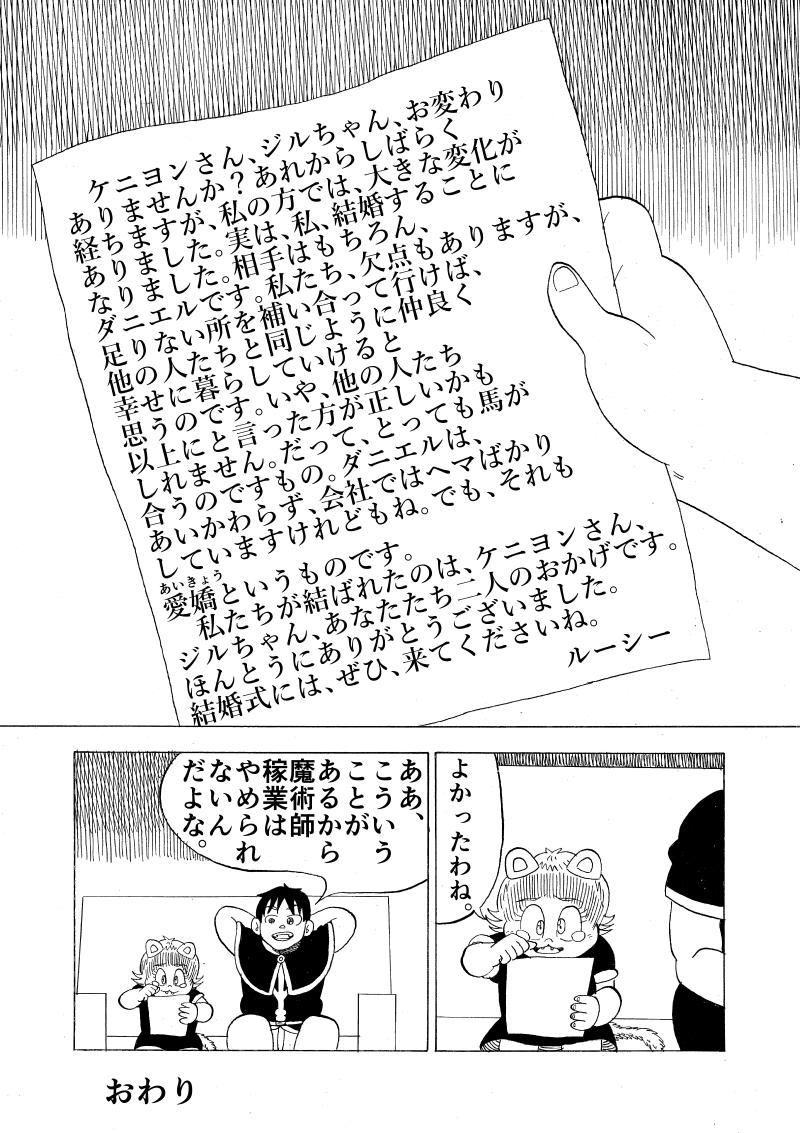 ケニヨンさん、ジルちゃん、お変わり
ありませんか？あれからしばらく
経ちますが、私の方では、大きな変化が
ありました。実は、私、結婚することに
なりました。相手は、もちろん、
ダニエルです。私たち、欠点もありますが、
足りない所を補い合って行けば、
他の人たちと同じように仲良く
幸せに暮らしていけると
思うのです。いや、他の人たち
以上にと言った方が正しいかも
しれません。だって、とっても馬が
合うのですもの。ダニエルは、
あいかわらず、会社ではヘマばかり
していますけれどもね。でも、それも
愛嬌というものです。
あいきょう
私たちが結ばれたのは、ケニヨンさん、
ジルちゃん、あなたたち二人のおかげです。
ほんとうにありがとうございました。
結婚式には、ぜひ、来てくださいね。
ルーシー
よかったわね。
ああ、
こういう
ことが
あるから
魔術師
稼業は
やめられ
ないん
だよな。
おわり